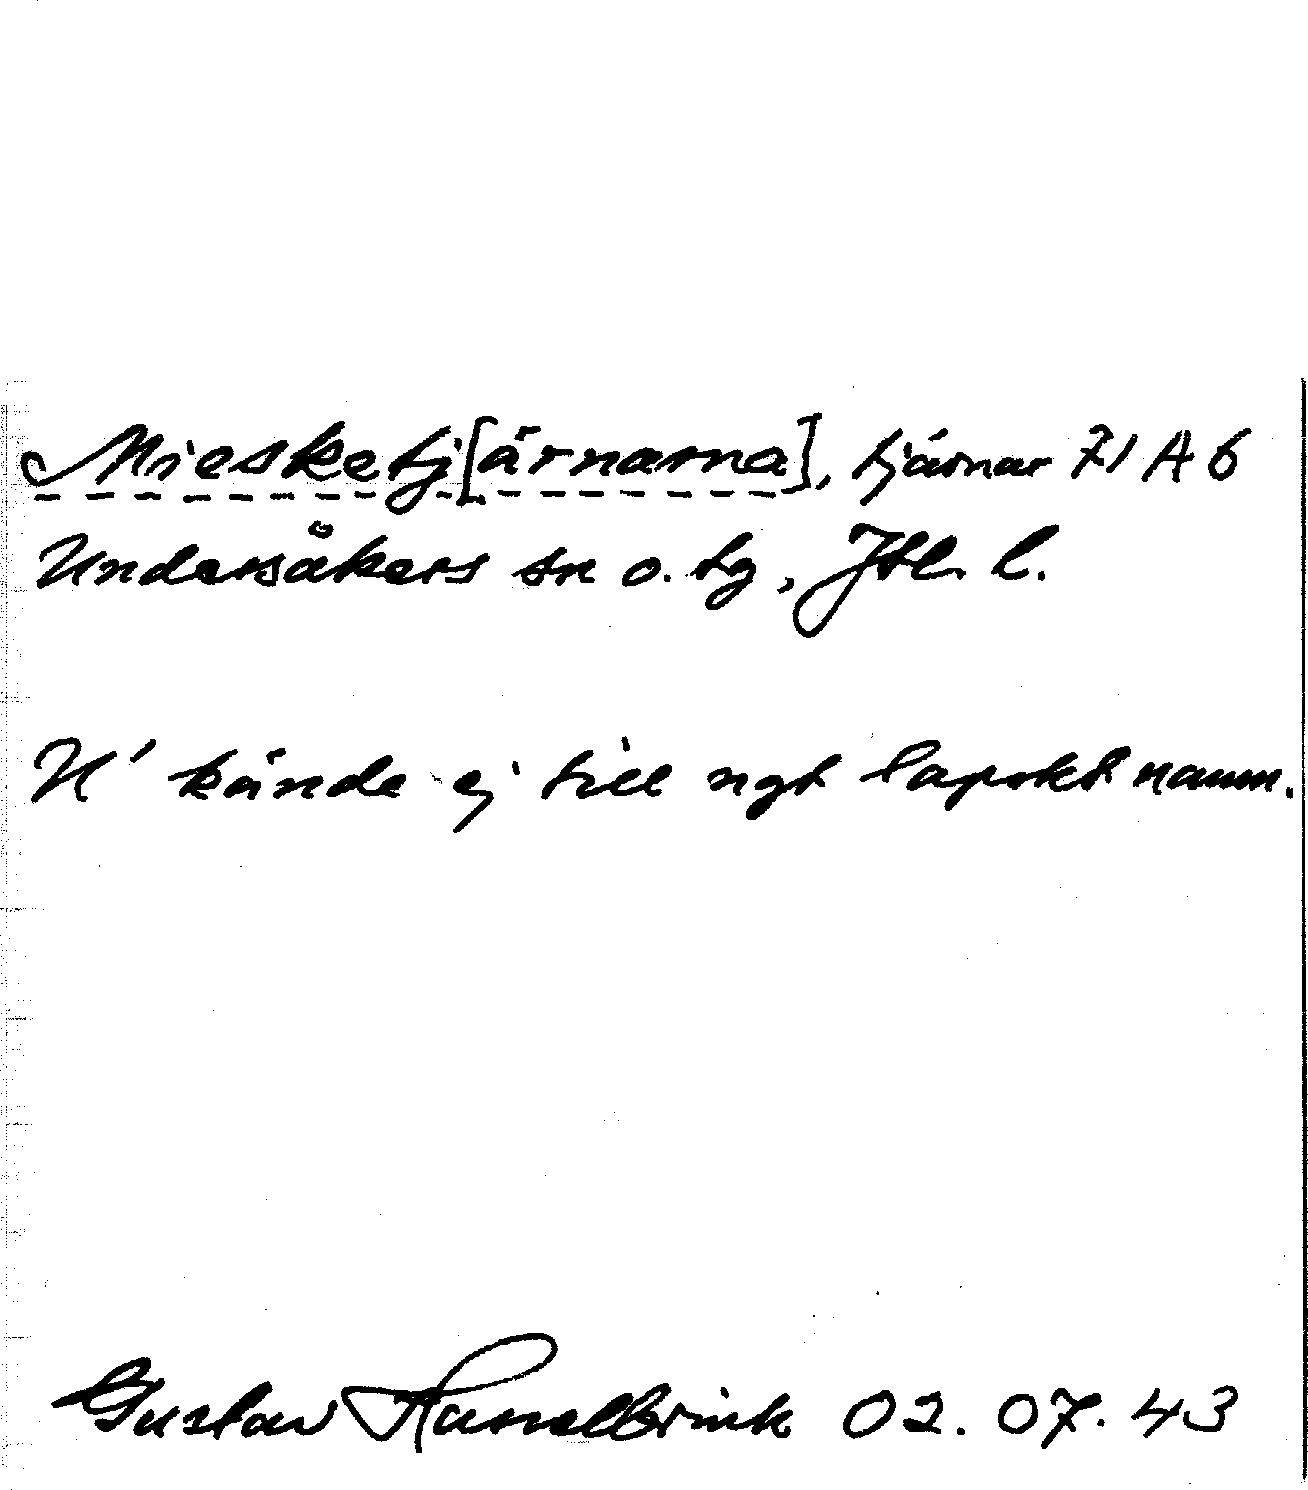 Miesketj[ärnarna], tjärnar 71 A b
Undersåkers sn o. tg, Jtl. l.
N' kände ej till ngt lapskt namn.
Gustav Hasselbrink 02.07.43